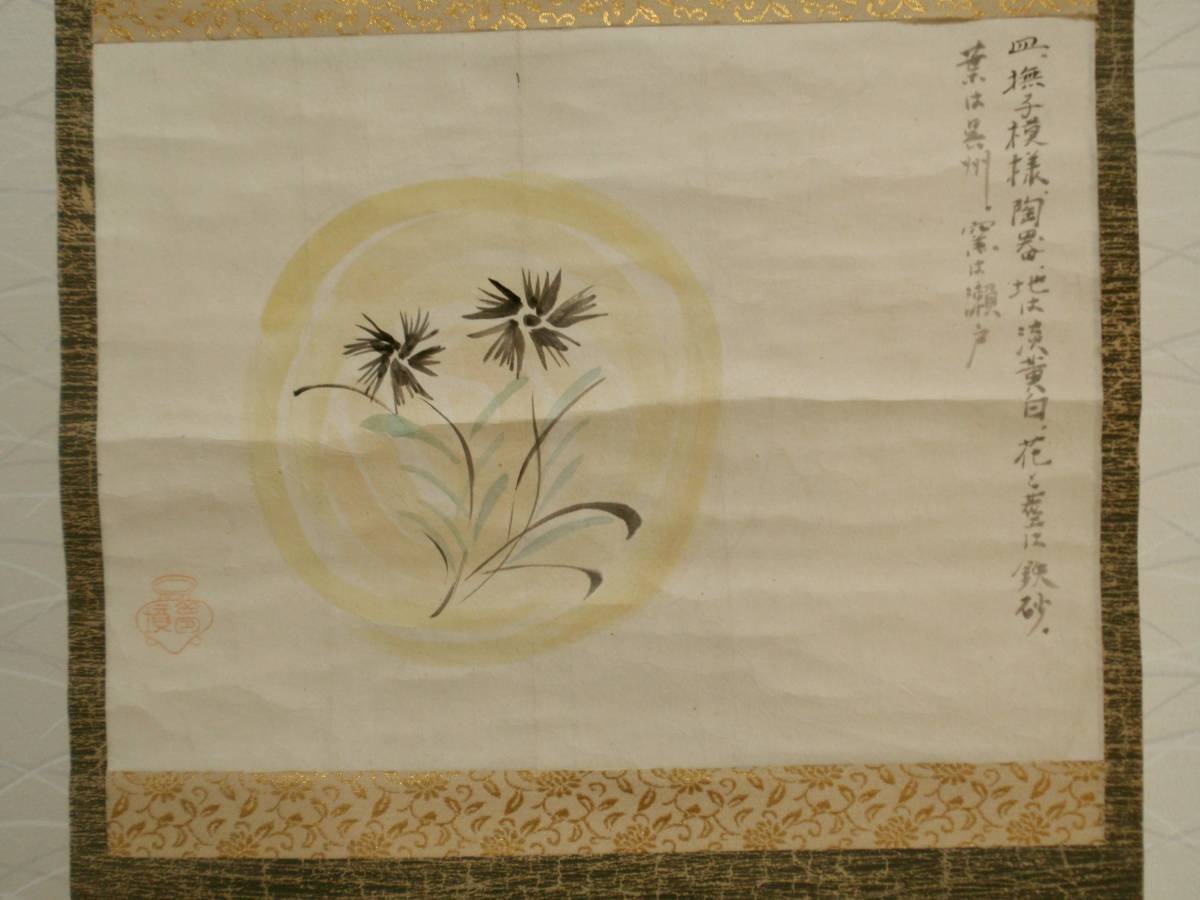 皿、撫子模様、陶器、地は淡黄白、花と莖は鉄砂。
葉は呉州。窯は瀬戸